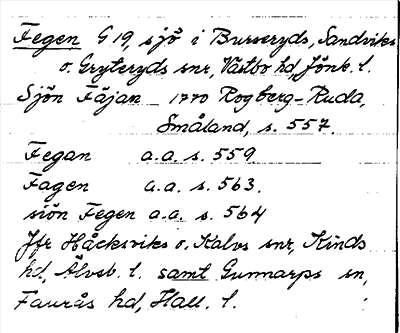 Fegen G 19, sjö i Burseryds, Sandviks
o. Gryteryds snr, Västbo hd, Jönk. l.
Sjön Fäjan 1770 Rogberg-Ruda,
Småland, s. 557.
Fegan a.a. s. 559
Fagen a.a. s. 563.
siön Fegen a.a. s. 564
Jfr Håcksviks o. Kalvs snr, Kinds
hd, Älvsb. l. samt Gunnarps sn,
Faurås hd, Hall. l.